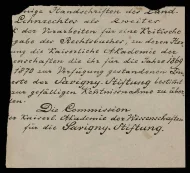 einige Handschriften des Land-
Lehnrechtes als zweiter
der Vorarbeiten für eine Kritische
gabe des Rechtsbuches, zu deren Her
ung die Kaiserliche Akademie der
enschaften die ihr für die Jahre 1869
1870 zur Verfügung gestandenen In
der Savigny Stiftung bestimt
zur gefälligen Kentnisnahme zu über
Die Commission
der Kaiserl. Akademie der Wissenschaften
für die Savigny-Stiftung.